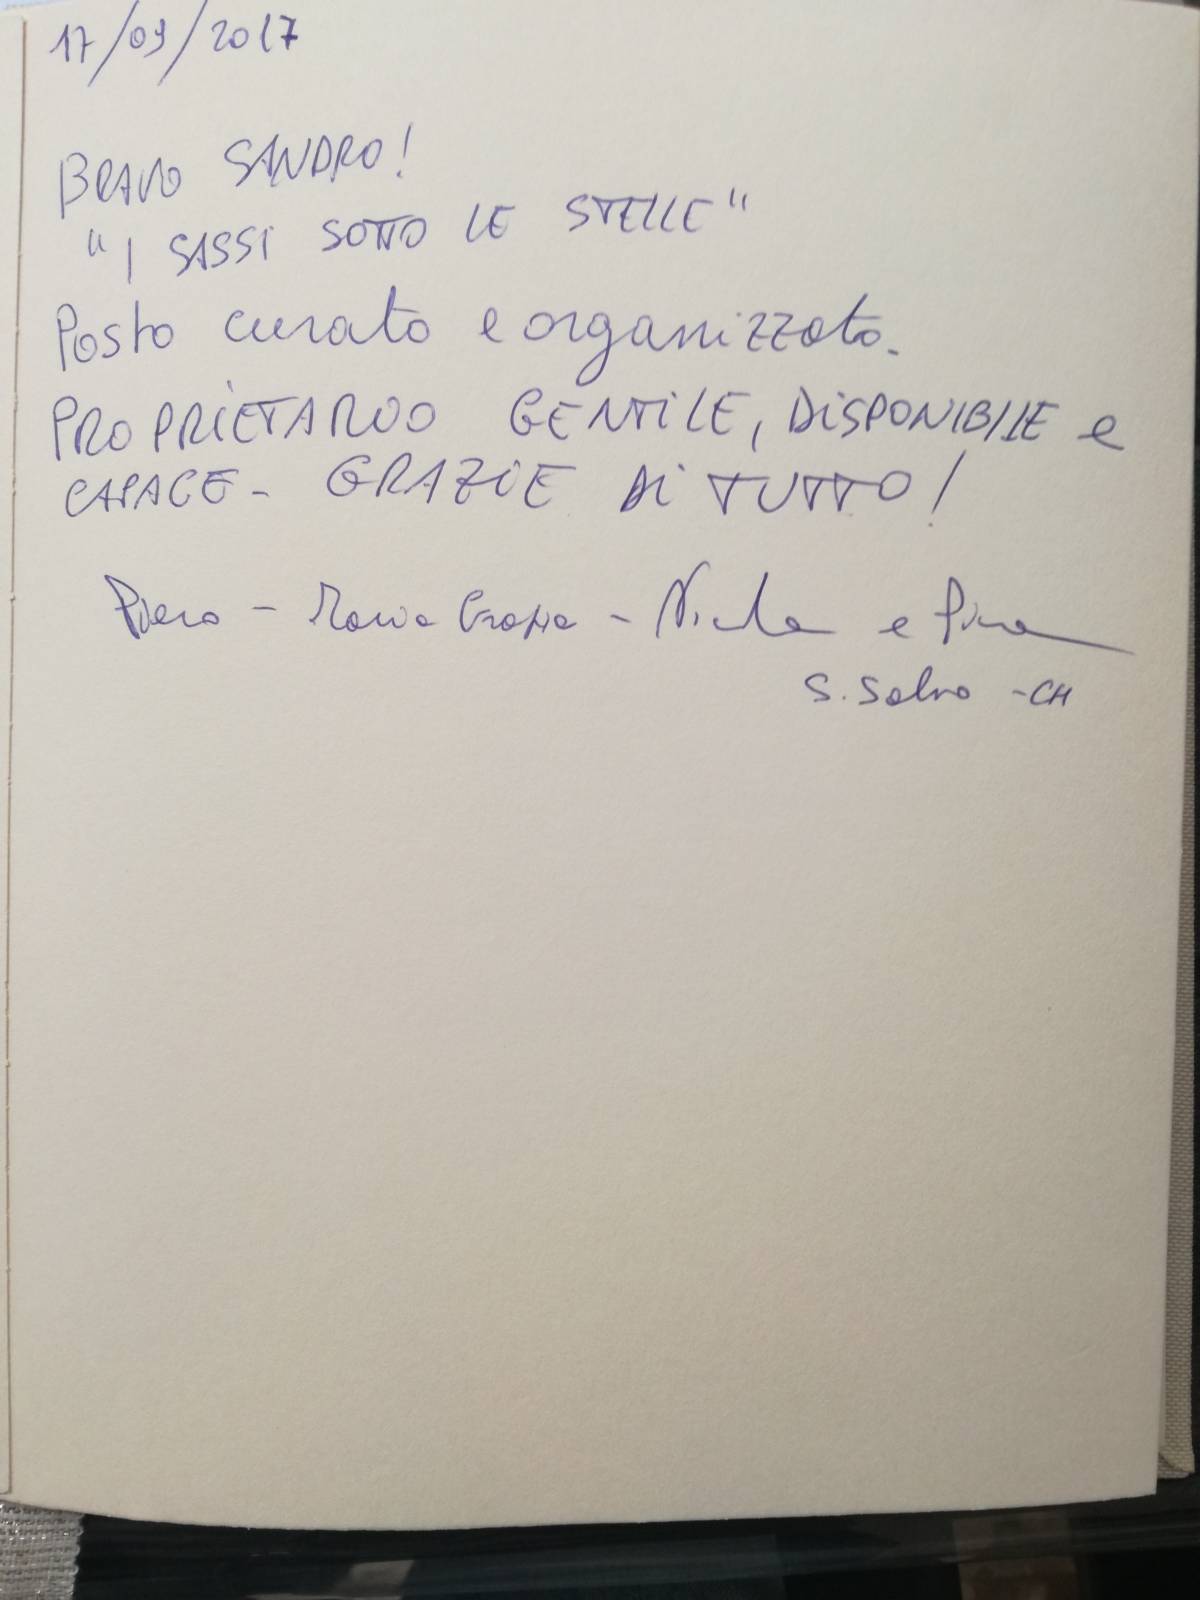 17/09/2017
BRAVO SANDRO!
"I SASSI SOTTO LE STELLE"
Posto curato e organizzato.
PROPRIETARIO GENTILE, DISPONIBILE e
CAPACE - GRAZIE DI TUTTO!
Piero - Maria Grazia - Nicola e Pina
S. Salvo - CH